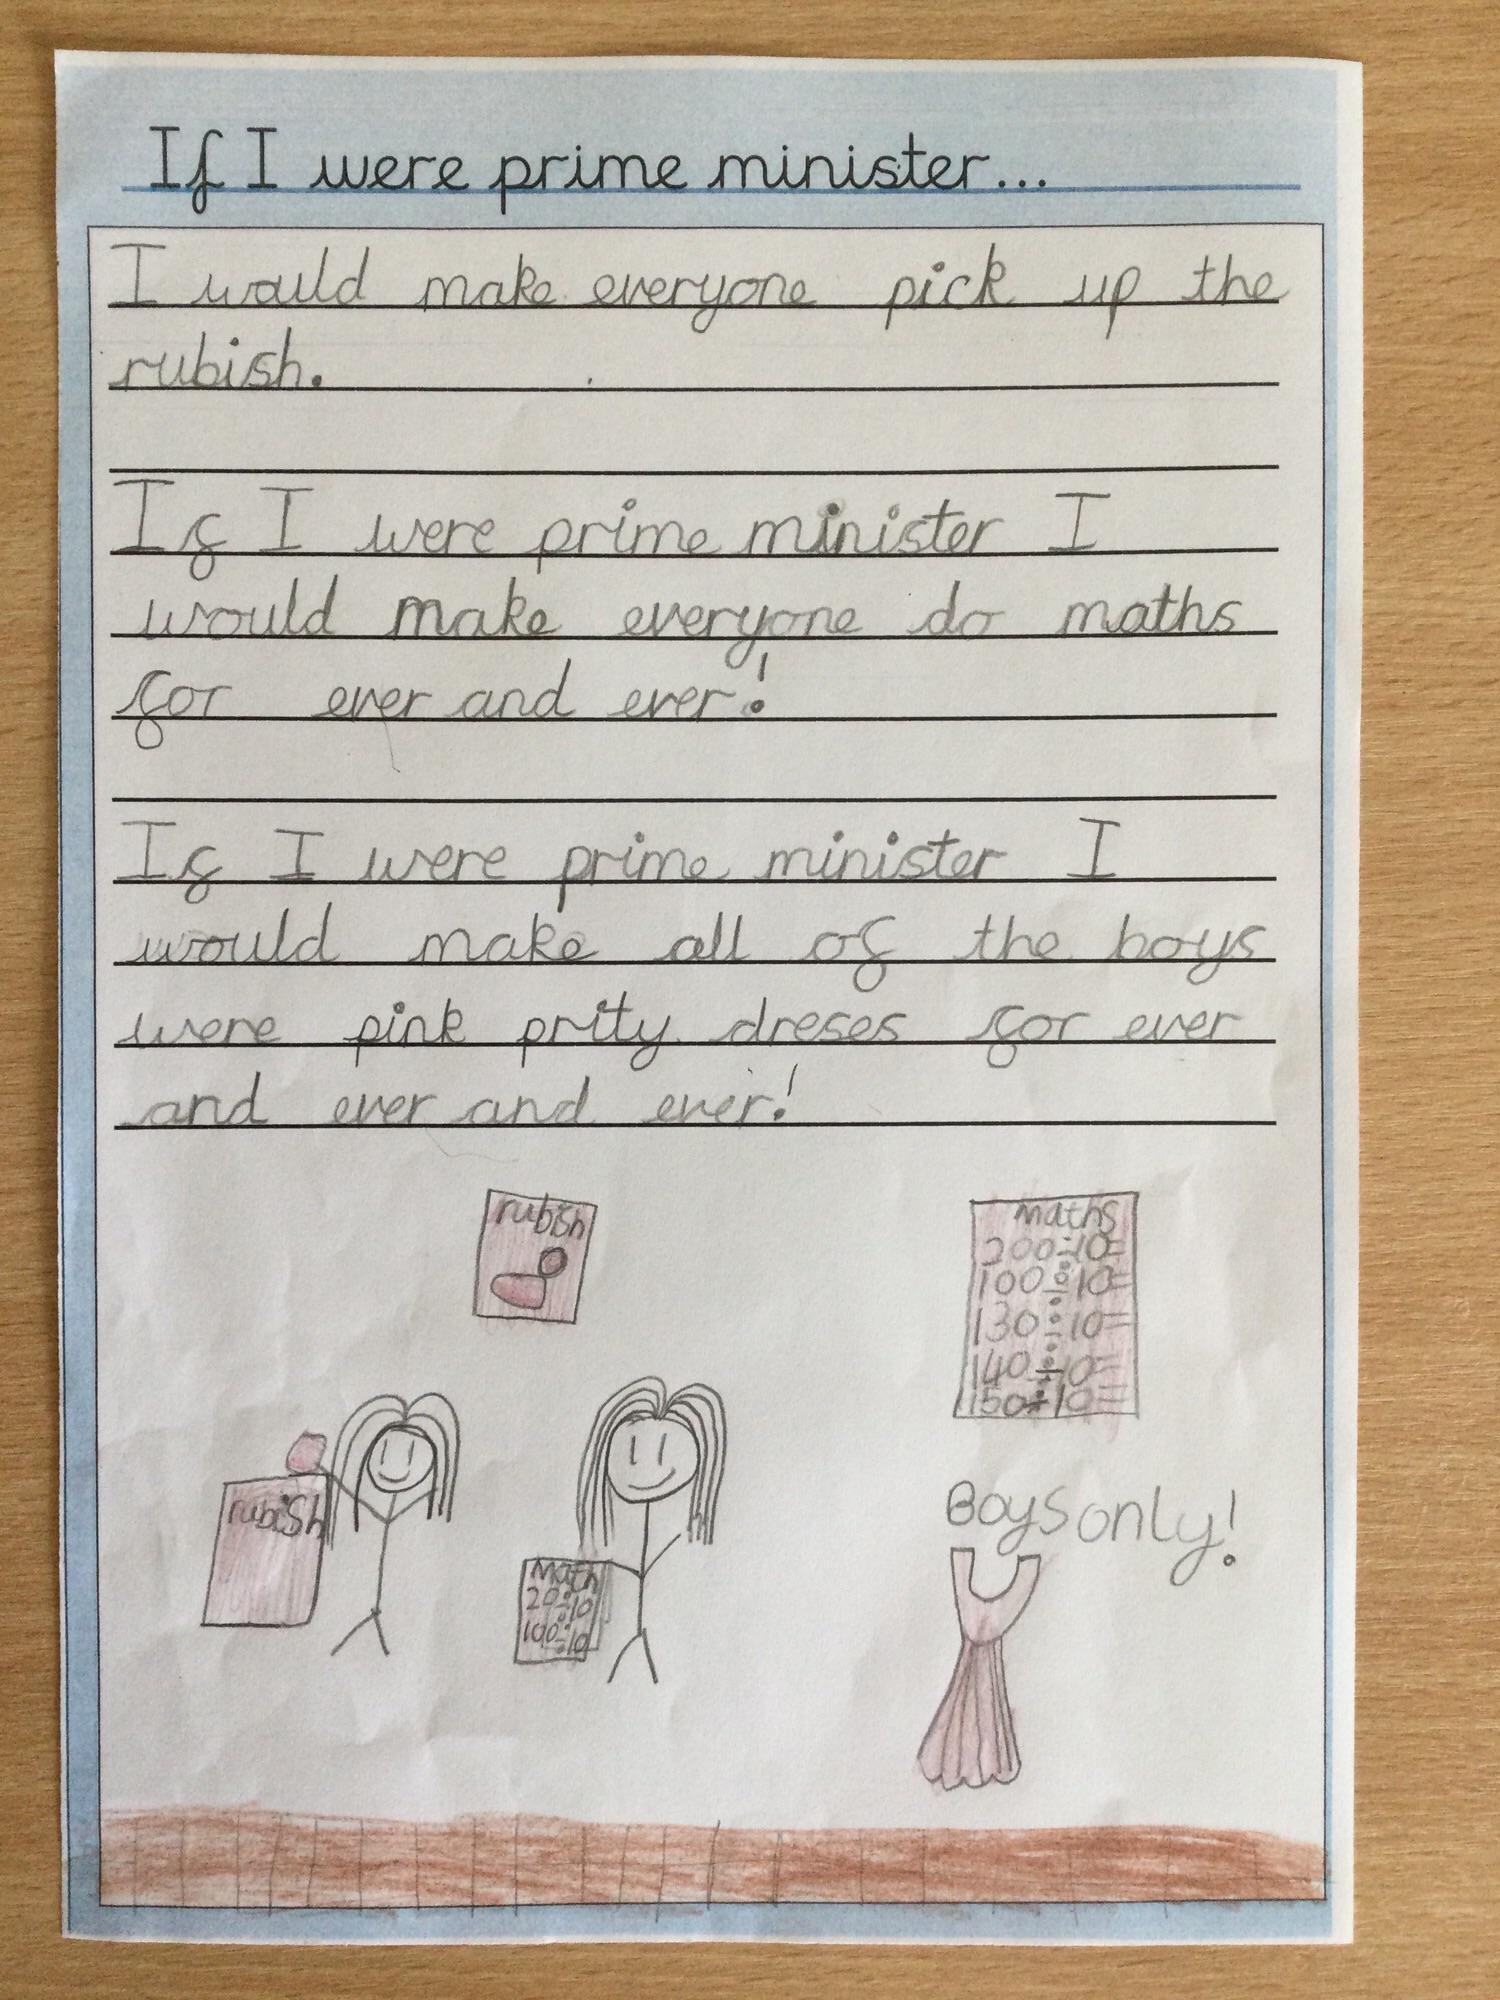 If I were prime minister...
I would make everyone pick up the
rubish.
If I were prime minister I
would make everyone do maths
for ever and ever!
If I were prime minister I
would make all of the boys
were pink prity dreses for ever
and ever and ever!
rubish
maths
200÷10=
100÷10=
130÷10=
140÷10=
150÷10=
rubish
Math
20÷10
100÷10
Boys only!